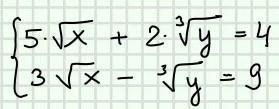 5·√x + 2·∛y = 4
3√x − ∛y = 9